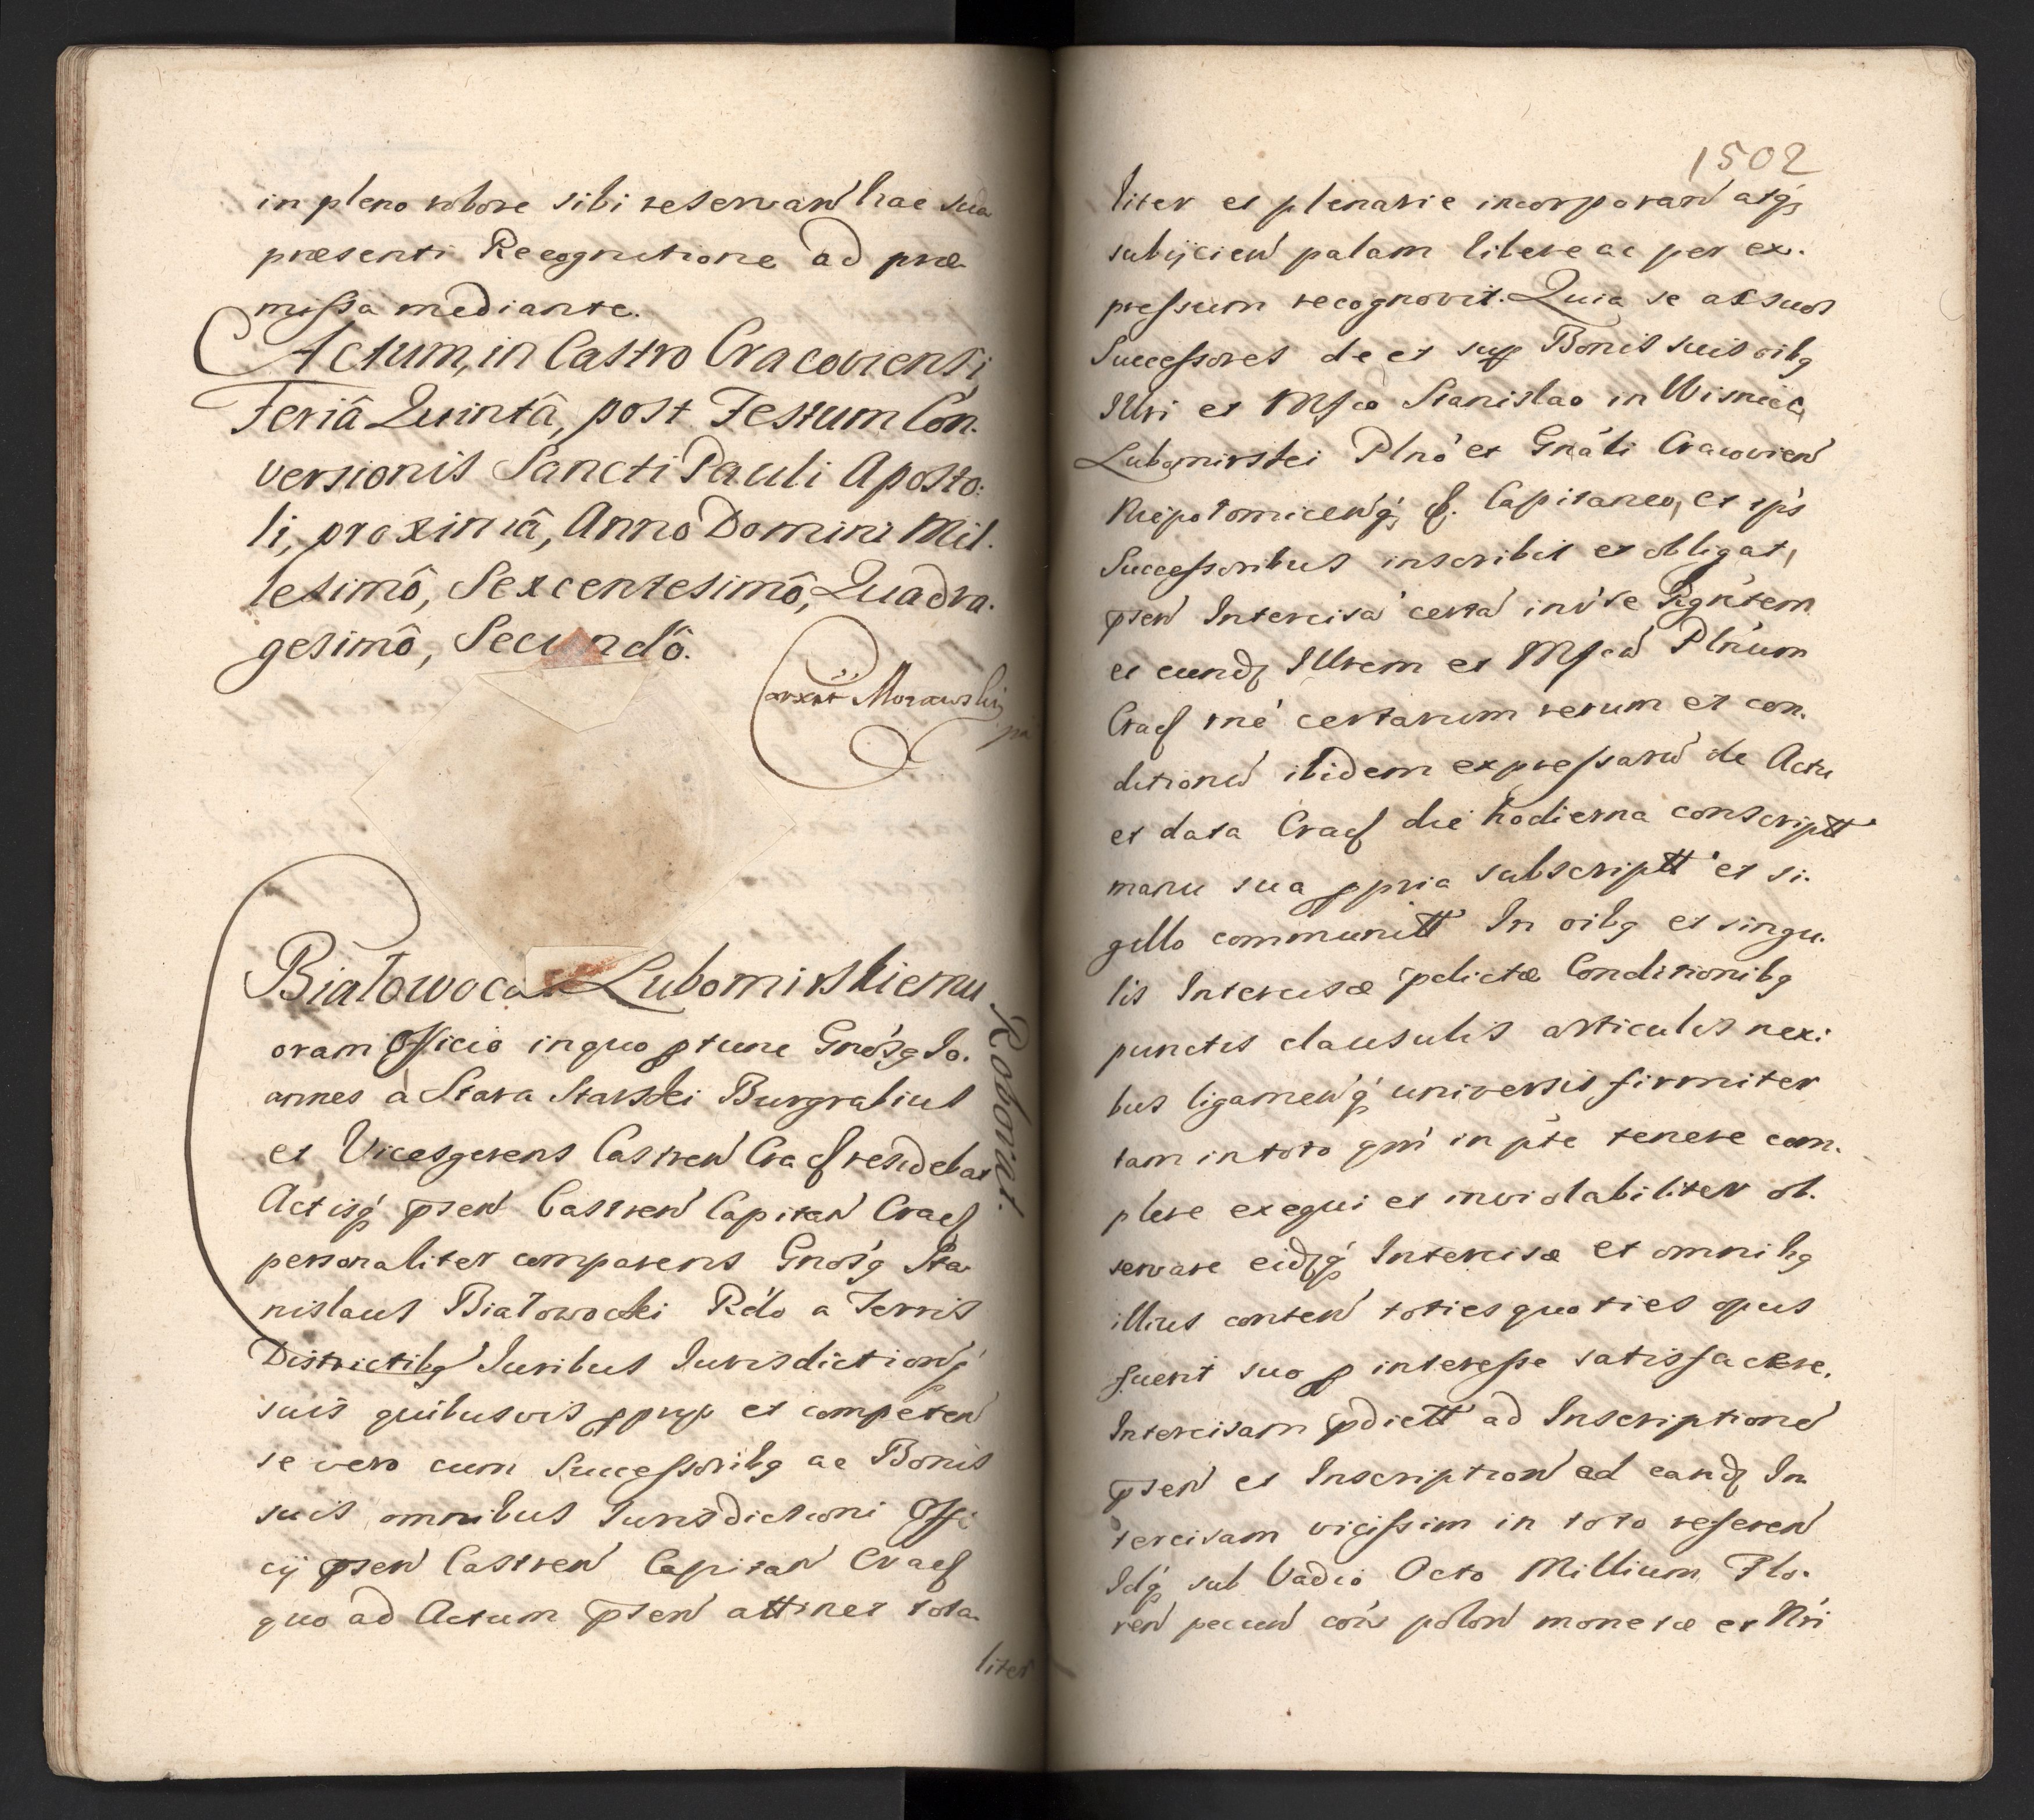 in pleno robore sibi reservan̄ hac sua
præsenti Recognitione ad præ-
missa mediante.
Actum, in Castro Cracoviensi
Feriâ Quintâ, post Festum Con-
versionis Sancti Pauli Aposto-
li, proximâ, Anno Domini Mil-
lesimô, Sexcentesimô, Quadra-
gesimô, Secundô.
Morawski
Białowocki Lubomirskiemu
Roborat.
oram Officio in quo ptunc Gnosq Jo-
annes à Stara Starski Burgrabius
et Vicesgerens Castren Crac residebat
Actisq pten Castren Capitan Crac
personaliter comparens Gnosq Sta-
nislaus Białowocki Rcto a Terris
Districtibq Iuribus Iurisdictionq
suis quibusvis pprys et competen
se vero cum Successoribq ac Bonis
suis omnibus Iurisdictioni Offi-
cij pten Castren Capitan Crac
quo ad Actum pten attinet tota-
liter
1502
liter et plenarie incorporan atq
subijcien palam libere ac per ex-
pressum recognovit. Quia se ac suos
Successores de et sup Bonis suis oibq
Illri et Mfco Stanislao in Wisnicz
Lubomirski Plno et Gnali Cracovien
Niepotomicenq. Capitaneo, et ips
Successoribus inscribit et obligat,
pten Intercisa certa int se Rgntem
et eundq Illrem et Mfcu Plnum
Crac rne certarum rerum et con-
ditionu ibidem expressaru de Actu
et data Crac die hodierna conscriptt
manu sua ppria subscriptt et si-
gillo communitt In oibq et singu-
lis Intercisæ pdictæ Conditionibq
punctis clausulis articulis nexi-
bus ligamenq universis firmiter
tam in toto qm in pte tenere com-
plere exequi et inviolabiliter ob-
servare eidq Intercisæ et omnibq
illius conten toties quoties opus
fuerit suo p interesse satisfacere.
Intercisam pdictt ad Inscriptione
pten et Inscription ad eandq In-
tercisam vicissim in toto referen
Idq sub Vadio Octo Millium Flo-
ren pecun cois polon monetæ et Nri